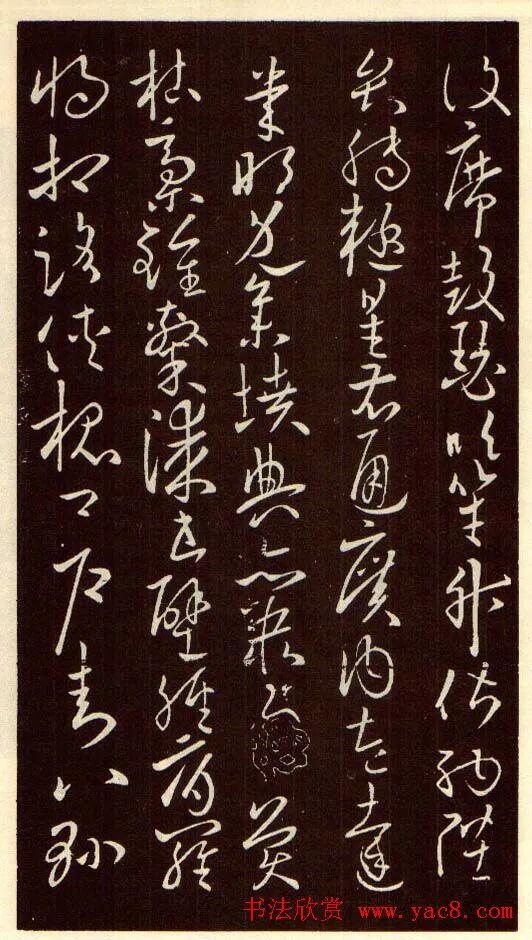 設席鼓瑟吹笙升階納陛
弁轉疑星右通廣內左達
承明既集墳典亦聚群英
杜稾鍾隸漆書壁經府羅
將相路俠槐卿戶封八縣
书法欣赏 www.yac8.com